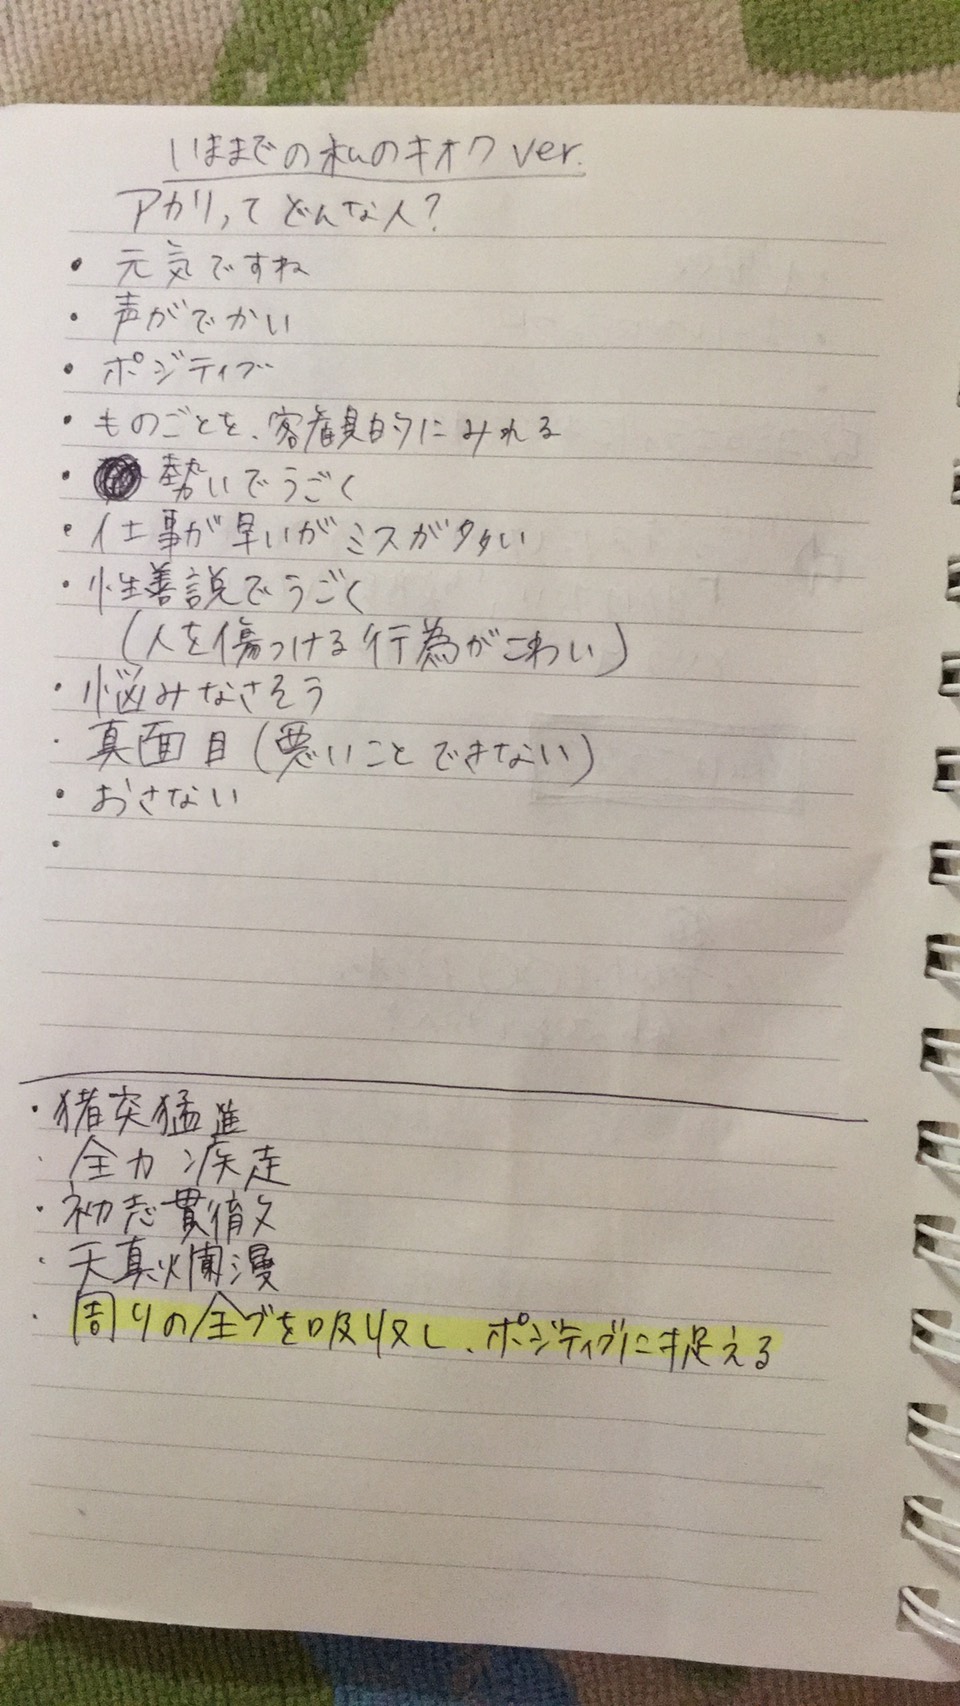 いままでの私のキオクver.
アカリってどんな人?
・元気ですね
・声がでかい
・ポジティブ
・ものごとを、客観的にみれる
・勢いでうごく
・仕事が早いがミスが多い
・性善説でうごく
(人を傷つける行為がこわい)
・悩みなさそう
・真面目(悪いことできない)
・おさない
・
・猪突猛進
・全力疾走
・初志貫徹
・天真爛漫
・周りの全ブを吸収し、ポジティブに捉える